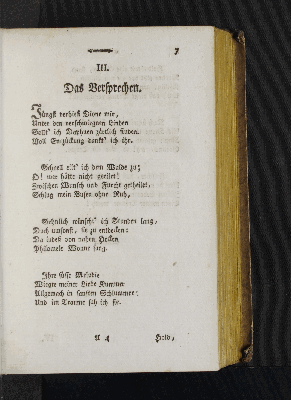 7
III.
Das Versprechen.
Jüngst verhieß Dione mir,
Unter den verschwiegnen Linden
Sollt' ich Daphnen zärtlich finden.
Voll Entzückung dankt' ich ihr.
Schnell eilt' ich dem Walde zu;
O! wer hätte nicht geeilet!
Zwischen Wunsch und Furcht getheilet,
Schlug mein Busen ohne Ruh,
Sehnlich wünscht' ich Stunden lang,
Doch umsonst, sie zu entdecken:
Da indeß von nahen Hecken
Philomele Wonne sang.
Ihre süße Melodie
Wiegte meiner Liebe Kummer
Allgemach in sanften Schlummer;
Und im Traume sah ich sie.
A 4 Hold,